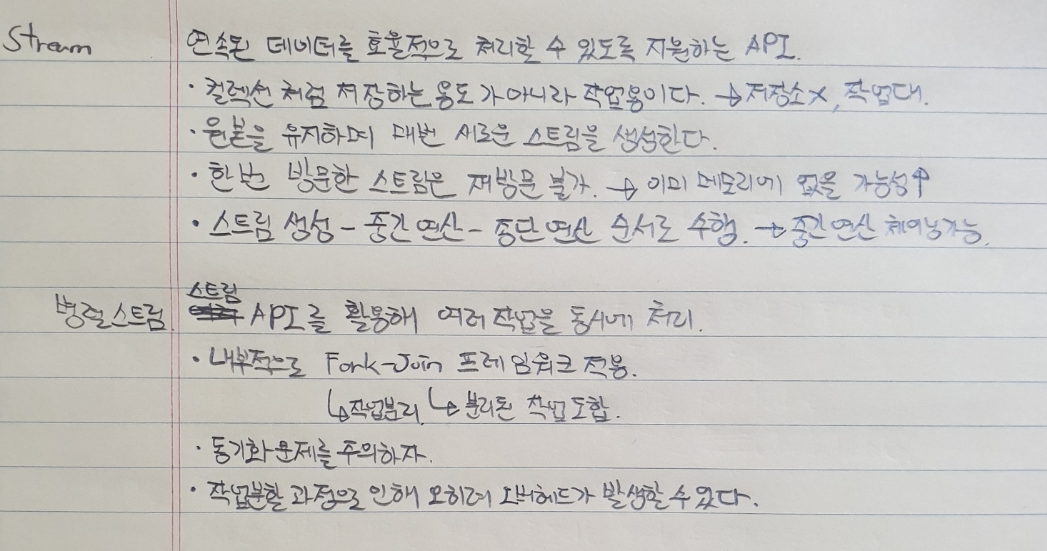 Stream 연속된 데이터를 효율적으로 처리할 수 있도록 지원하는 API.
· 컬렉션 처럼 저장하는 용도가 아니라 작업용이다. → 저장소X, 작업대.
· 원본을 유지하며 매번 새로운 스트림을 생성한다.
· 한번 방문한 스트림은 재방문 불가. → 이미 메모리에 없을 가능성↑
· 스트림 생성 - 중간연산 - 종단연산 순서로 수행. → 중간연산 체이닝가능.
병렬스트림. 스트림 API를 활용해 여러작업을 동시에 처리.
· 내부적으로 Fork-Join 프레임워크 적용.
↳작업분리, ↳분리된 작업도합.
· 동기화문제를 주의하자.
· 작업분할 과정으로 인해 오히려 오버헤드가 발생할 수 있다.